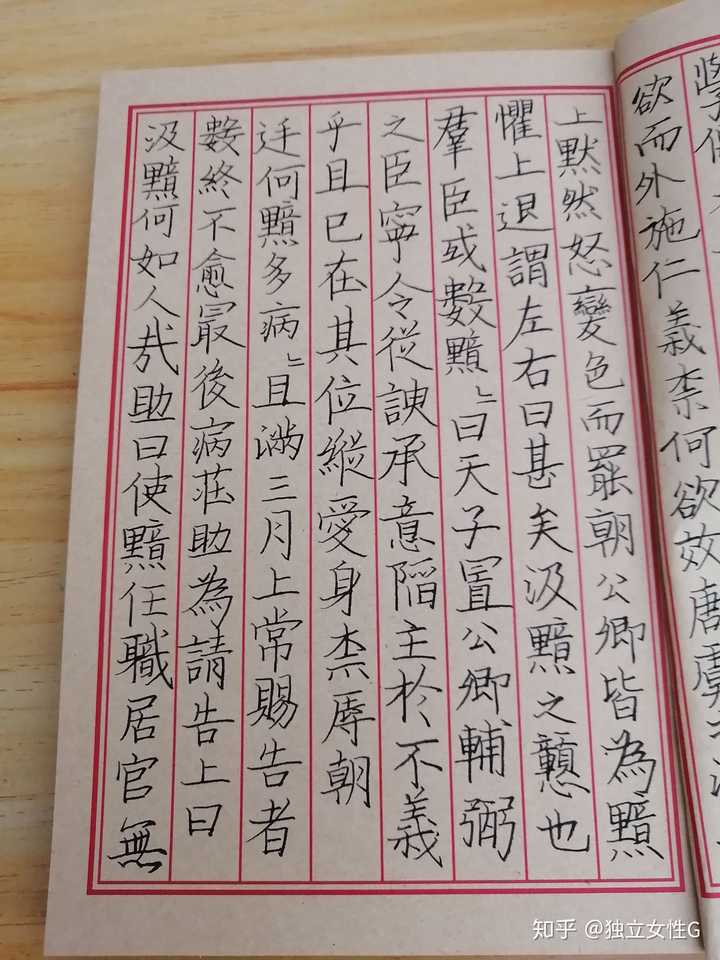 欲而外施仁義柰何欲效唐虞
上默然怒變色而罷朝公卿皆為黯
懼上退謂左右曰甚矣汲黯之戇也
羣臣或數黯〻曰天子置公卿輔弼
之臣寧令從諛承意陷主於不義
乎且已在其位縱愛身柰辱朝
廷何黯多病〻且滿三月上常賜告者
數終不愈最後病莊助為請告上曰
汲黯何如人哉助曰使黯任職居官無
知乎 @独立女性G